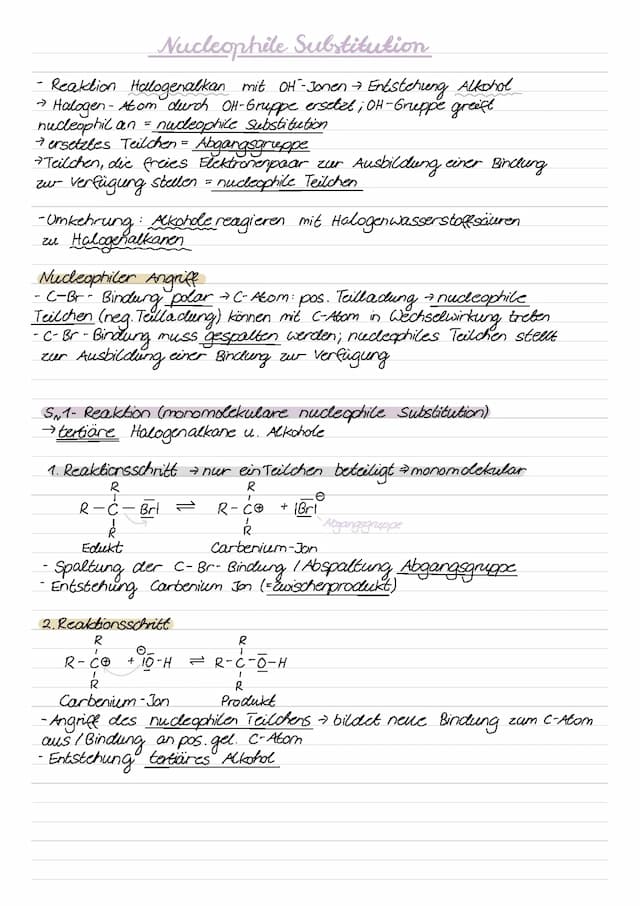 Nucleophile Substitution
- Reaktion Halogenalkan mit OH⁻-Jonen → Entstehung Alkohol
→ Halogen-Atom durch OH-Gruppe ersetzt; OH-Gruppe greift
nucleophil an = nucleophile Substitution
→ ersetztes Teilchen = Abgangsgruppe
→ Teilchen, die freies Elektronenpaar zur Ausbildung einer Bindung
zur Verfügung stellen = nucleophile Teilchen
- Umkehrung: Alkohole reagieren mit Halogenwasserstoffsäuren
zu Halogenalkanen
Nucleophiler Angriff
- C-Br- Bindung polar → C-Atom: pos. Teilladung → nucleophile
Teilchen (neg. Teilladung) können mit C-Atom in Wechselwirkung treten
- C-Br-Bindung muss gespalten werden; nucleophiles Teilchen stellt
zur Ausbildung einer Bindung zur Verfügung
SN1- Reaktion (monomolekulare nucleophile Substitution)
→ tertiäre Halogenalkane u. Alkohole
1. Reaktionsschritt → nur ein Teilchen beteiligt → monomolekular
R R
R-C-Br| ⇌ R-C⊕ + |Br|⊖
R R
Abgangsgruppe
Edukt Carbenium-Jon
- Spaltung der C-Br-Bindung / Abspaltung Abgangsgruppe
- Entstehung Carbenium Jon (=Zwischenprodukt)
2. Reaktionsschritt
R R
R-C⊕ + ⊖|O-H ⇌ R-C-O-H
R R
Carbenium-Jon Produkt
- Angriff des nucleophilen Teilchens → bildet neue Bindung zum C-Atom
aus / Bindung an pos. gel. C-Atom
- Entstehung tertiäres Alkohol